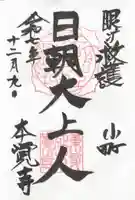 眼の救護
日朝大上人
令和七年
十二月九日
小町
本覚寺